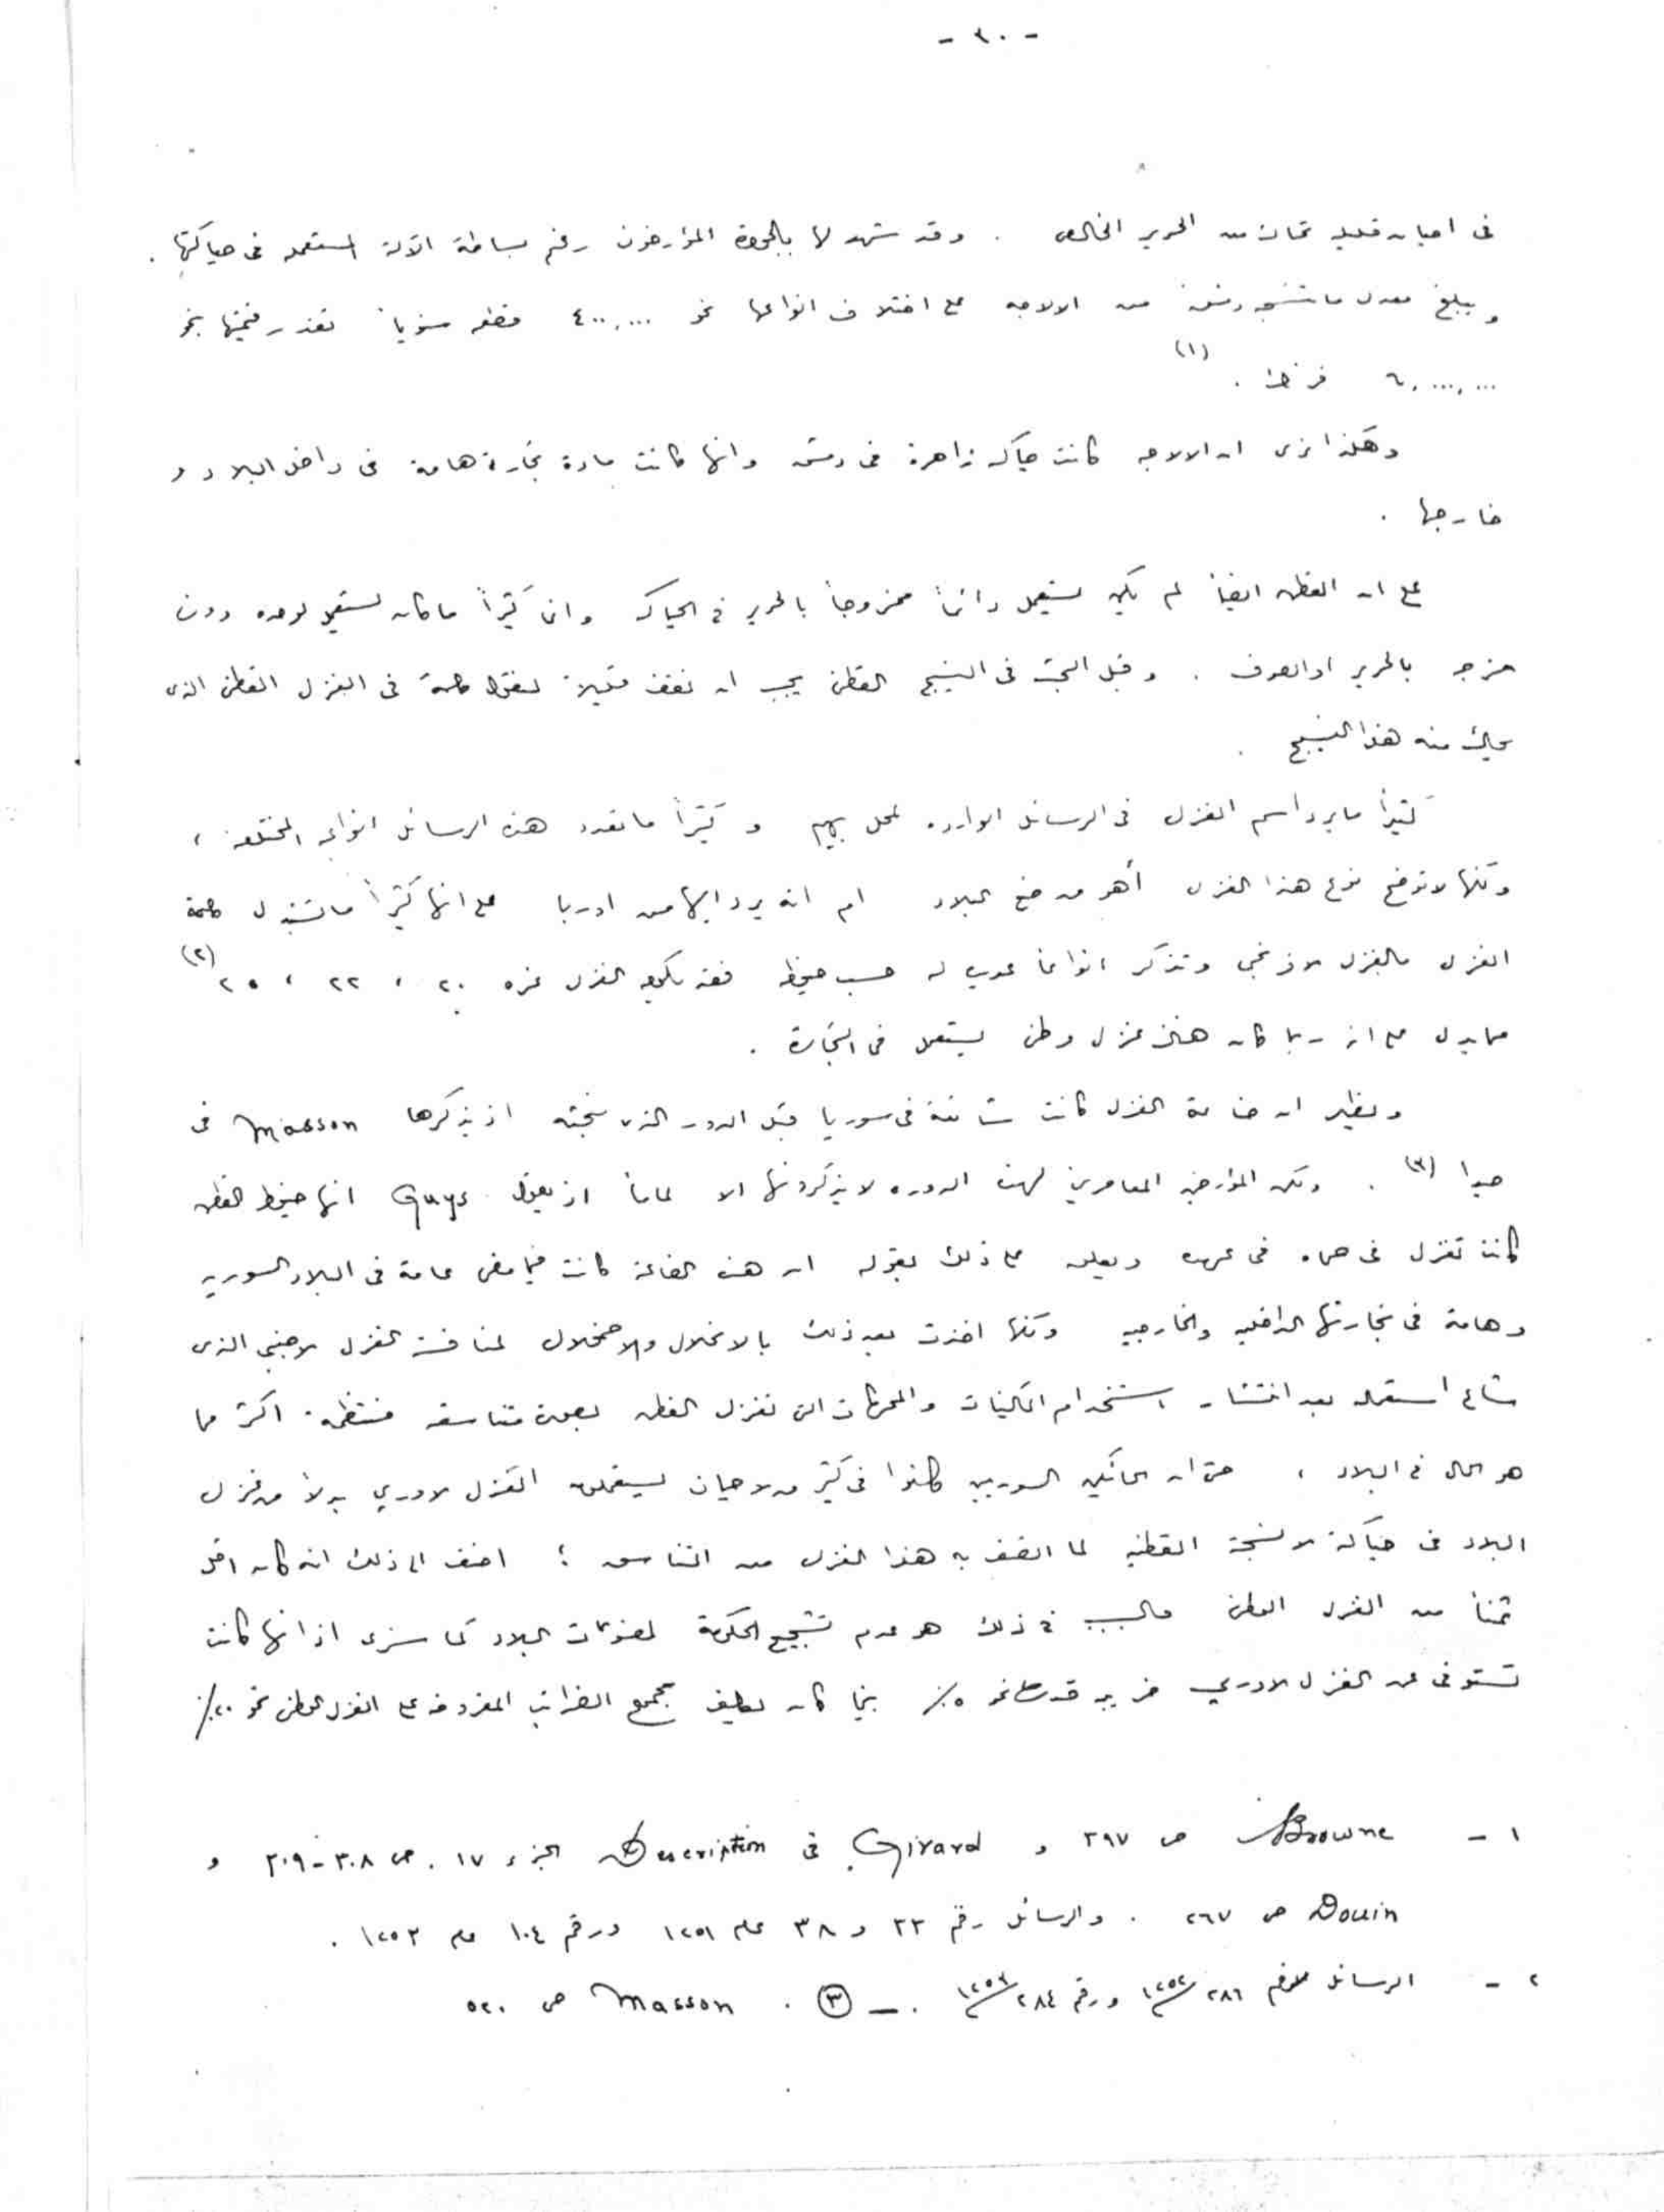 - ٣٠ -
فى احيان قليلة تحاك من الحرير الخالص . وقد شهد لها بالجودة المؤرخون رغم بساطة الآلة المستعملة فى حياكتها .
ويبلغ معدل ما تنتجه دمشق من الالاجه على اختلاف انواعها نحو ٤٠٠,٠٠٠ قطعه سنوياً تقدر قيمتها بنحو
٦,٠٠٠,٠٠٠ فرنكا . (١)
وهكذا نرى ان الالاجه كانت حياكه زاهرة فى دمشق وانها كانت مادة تجارة هامة فى داخل البلاد و
خارجها .
على ان القطن ايضاً لم يكن يستعمل دائماً ممزوجاً بالحرير فى الحياكه وانما كثيراً ما كان يستعمل لوحده دون
مزجه بالحرير او الصوف . وقبل البحث فى النسيج القطنى يجب ان نقف قليلاً لنقول كلمة فى الغزل القطنى الذى
يحاك منه هذا النسيج .
كثيراً ما يرد اسم الغزل فى الرسائل الوارده لمحل بهيم و كثيراً ما تعدد هذه الرسائل انواعه المختلفه ،
ولكنها لا توضح نوع هذا الغزل أهو من صنع البلاد ام انه يرد اليها من اوربا على انها كثيراً ما تستبدل كلمة
الغزل بالغزل الافرنجى وتذكر انواعاً عديده له حسب خيوطه فقد يكون الغزل نمره ٢٠ ، ٢٢ ، ٢٥ (٢)
مما يدل على انه ربما كان هناك غزل وطنى يستعمل فى التجارة .
ويظهر ان صناعة الغزل كانت شائعة فى سوريا قبل الدور الذى نبحثه اذ يذكرها Masson فى
صيدا (٣) . ولكن المؤرخين المعاصرين لهذه الدوره لا يذكرونها الا لماماً اذ يقول Guys انها خيوط القطن
كانت تغزل فى حماه فى عهده ويعلق على ذلك بقوله ان هذه الصناعة كانت فيما مضى عامة فى البلاد السوريه
وهامة فى تجارتها الداخليه والخارجيه ولكنها اخذت بعد ذلك بالانحلال والاضمحلال لمنافسة الغزل الاجنبى الذى
شاع استعماله بعد انتشار استخدام المكنيات والمحركات التى تغزل القطن بصورة متناسقه منتظمة اكثر مما
هو الحال فى البلاد ، حتى ان الحائكين السوريين كانوا فى كثير من الاحيان يستعملون الغزل الاوربي بدلاً من غزل
البلاد فى حياكة الانسجة القطنيه لما اتصف به هذا الغزل من التناسق ؛ اضف الى ذلك انه كان اقل
ثمناً من الغزل الوطنى والسبب فى ذلك هو عدم تشجيع الحكومة لمصنوعات البلاد كما سنرى اذ انها كانت
تستوفى عن الغزل الاوربي ضريبه قدرها نحو ٥٪ بينما كان مجموع الضرائب المفروضه على الغزل الوطنى نحو ٢٠٪
١ - Browne ص ٣٩٧ و Girard فى Description الجزء ١٧ . ص ٣٠٨-٣٠٩ و
Douin ص ٢٦٧ . والرسائل رقم ٣٣ و ٣٨ عام ١٢٥١ ورقم ١٠٤ عام ١٢٥٣ .
٢ - الرسائل رقم ٢٨٦/١٢٥٢ ورقم ٢٨٤/١٢٥٣ . — ٣ . Masson ص ٥٢٠